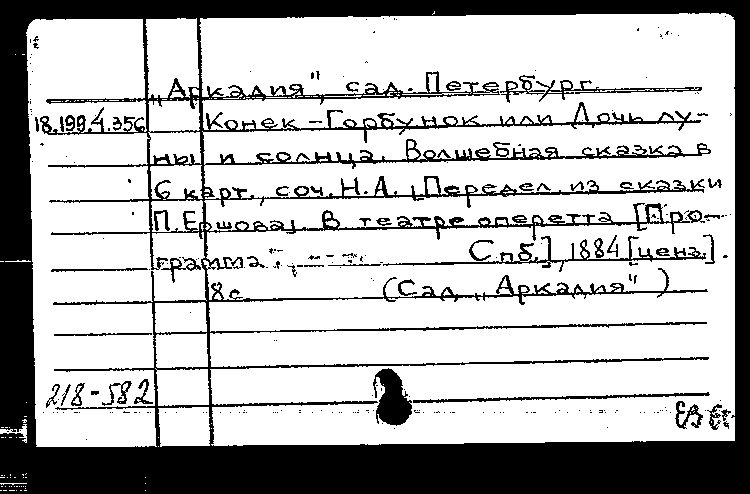 „Аркадия", сад. Петербург.
18.199.4.356 Конек-Горбунок или Дочь лу-
ны и солнца. Волшебная сказка в
6 карт., соч. Н.А. [Передел. из сказки
П. Ершова]. В театре оперетта [Про-
грамма. Спб.], 1884 [ценз.].
8 с. (Сад „Аркадия")
218-582